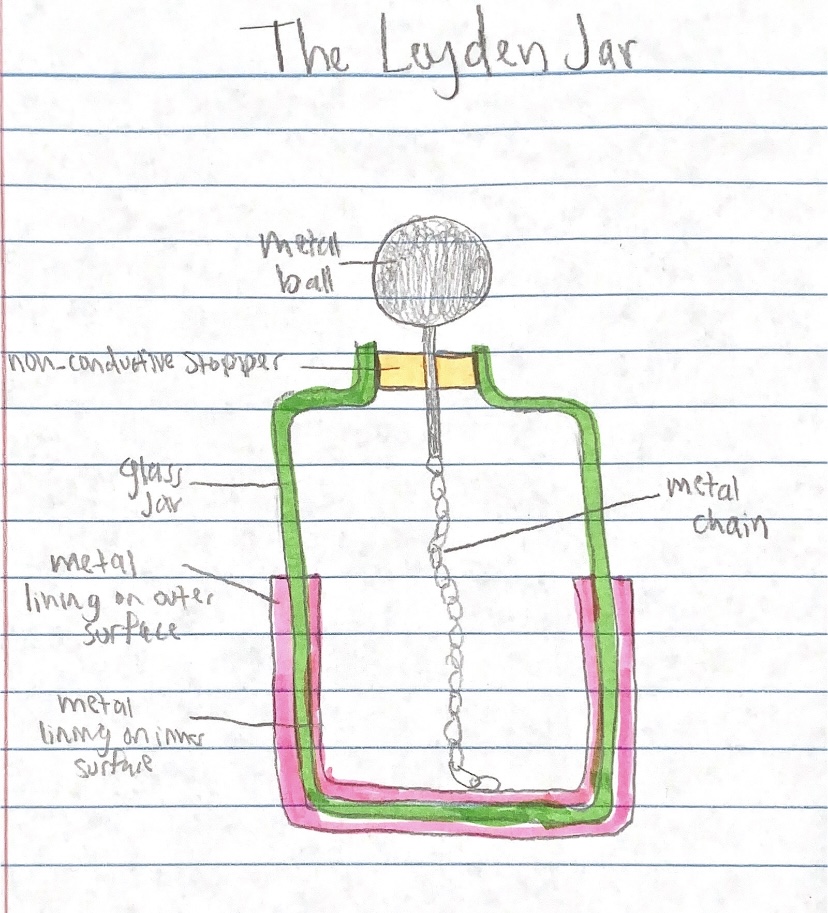 The Leyden Jar
metal
ball
non-conductive stopper
glass
jar
metal
chain
metal
lining on outer
surface
metal
lining on inner
surface